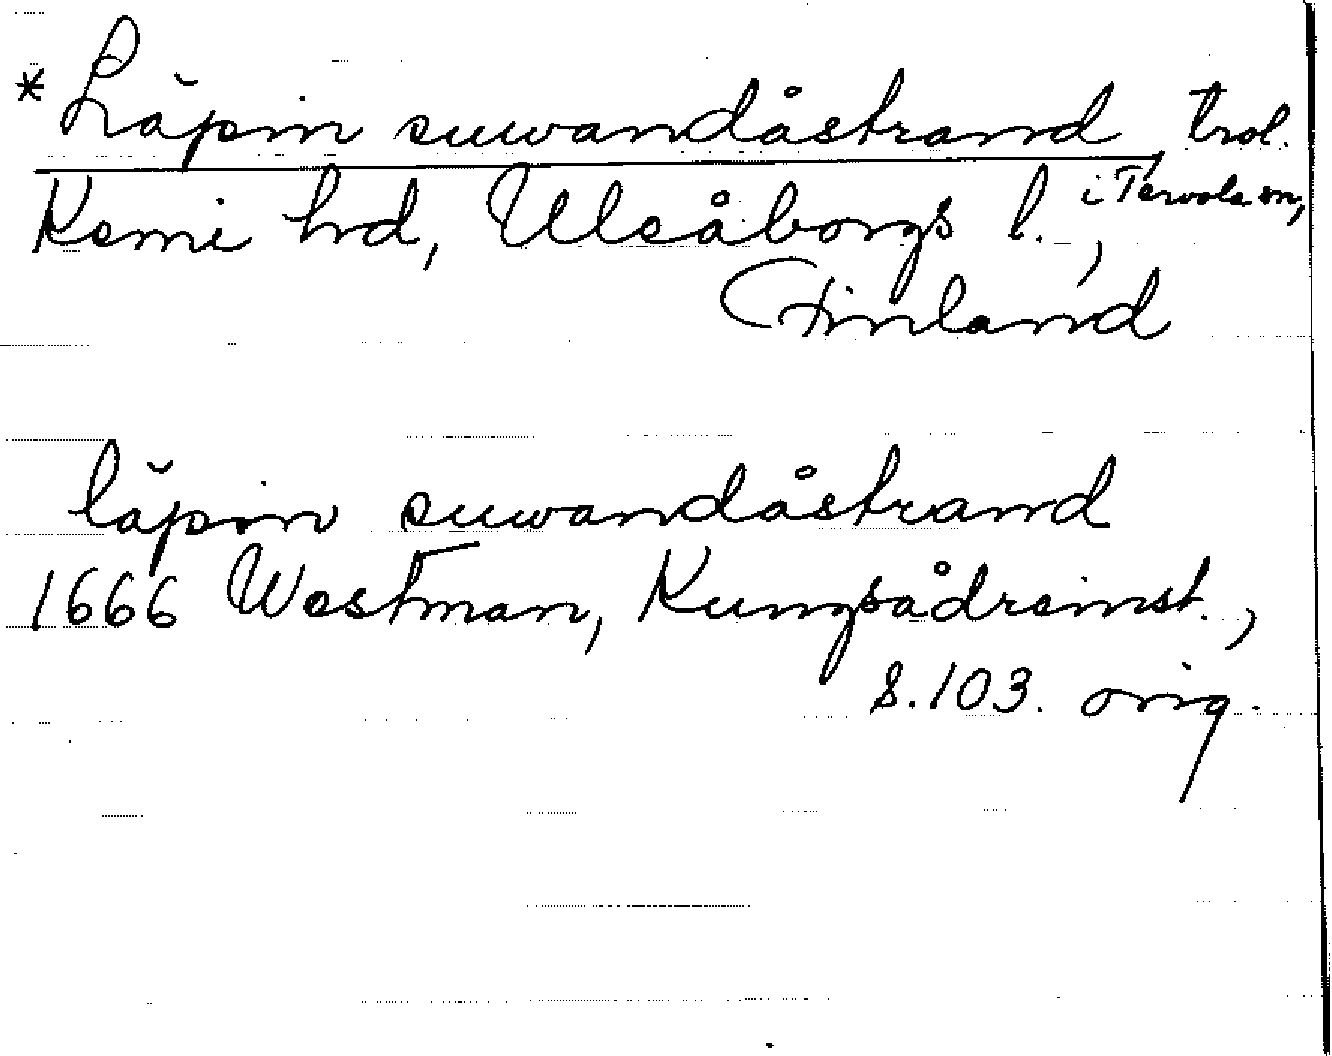 *Lăpin suwandåstrand, trol.
i Tervola sn,
Kemi hrd, Uleåborgs l.,
Finland
lăpin suwandåstrand
1666 Westman, Kungsådreinst.,
s. 103. orig.